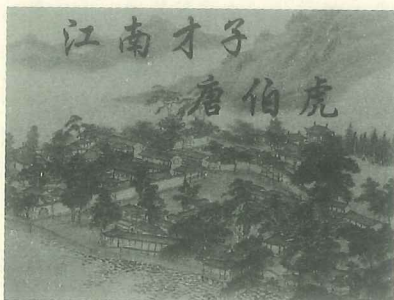 江南才子
唐伯虎